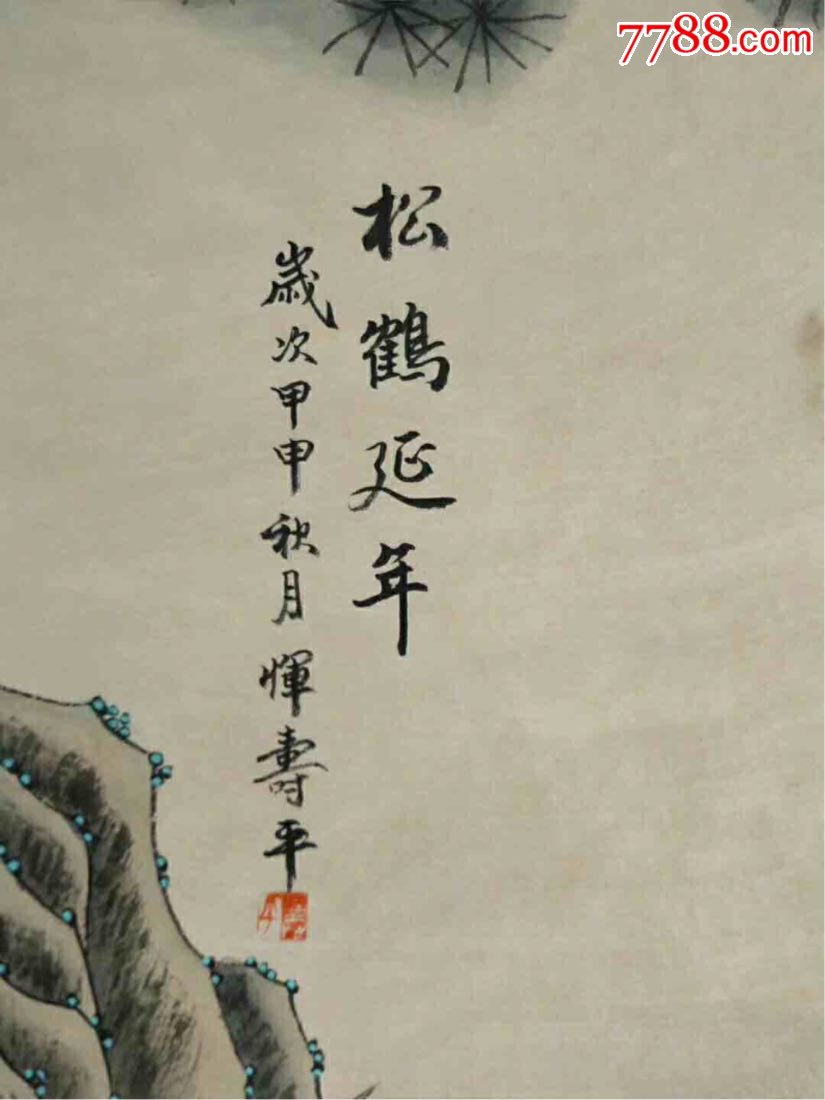 7788.com
松鶴延年
歲次甲申秋月惲壽平